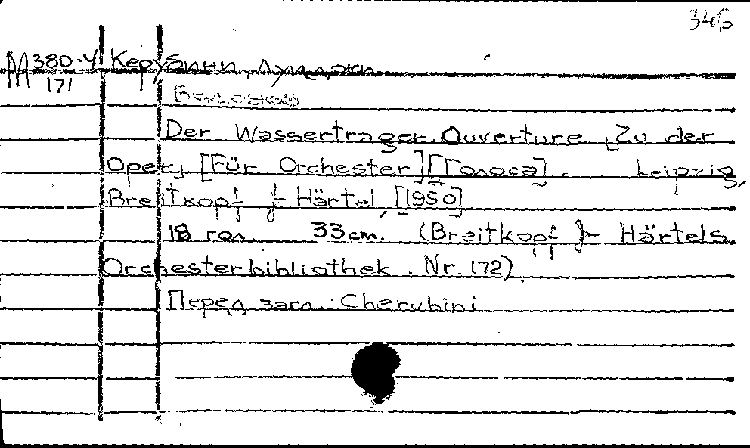 346
М380-У Керубини, Луиджи
171
Водовоз
Der Wasserträger. Ouverture zu der
Oper, [Für Orchester] [Голоса]. Leipzig,
Breitkopf & Härtel, [1950]
18 гол. 33 см. (Breitkopf & Härtels
Orchesterbibliothek. Nr. 172)
Перед загл.: Cherubini